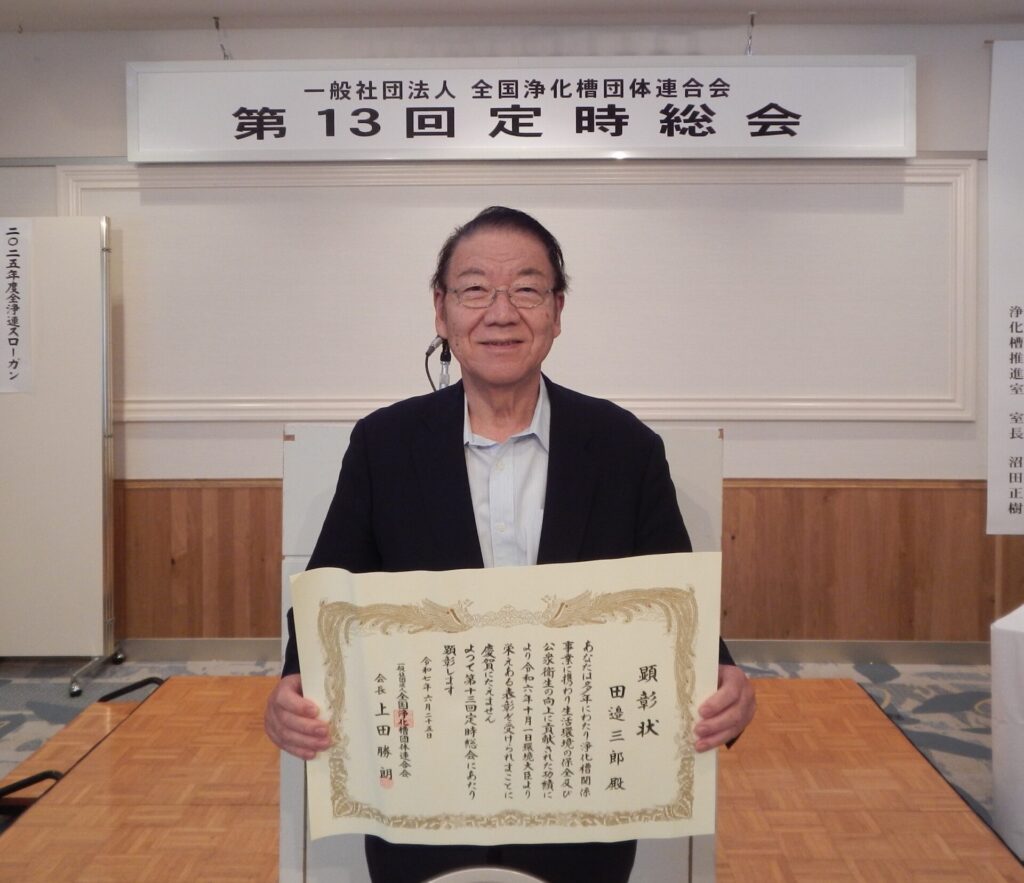 一般社団法人 全国浄化槽団体連合会
第13回定時総会
二〇二五年度全浄連スローガン
浄化槽推進室 室長 沼田正樹
顕彰状
田邉三郎 殿
あなたは多年にわたり浄化槽関係
事業に携わり生活環境の保全及び
公衆衛生の向上に貢献された功績に
より令和六年十月一日環境大臣より
栄えある表彰を受けられまことに
慶賀にたえません
よって第十三回定時総会にあたり
顕彰します
令和七年六月二十五日
一般社団法人全国浄化槽団体連合会
会長 上田勝朗